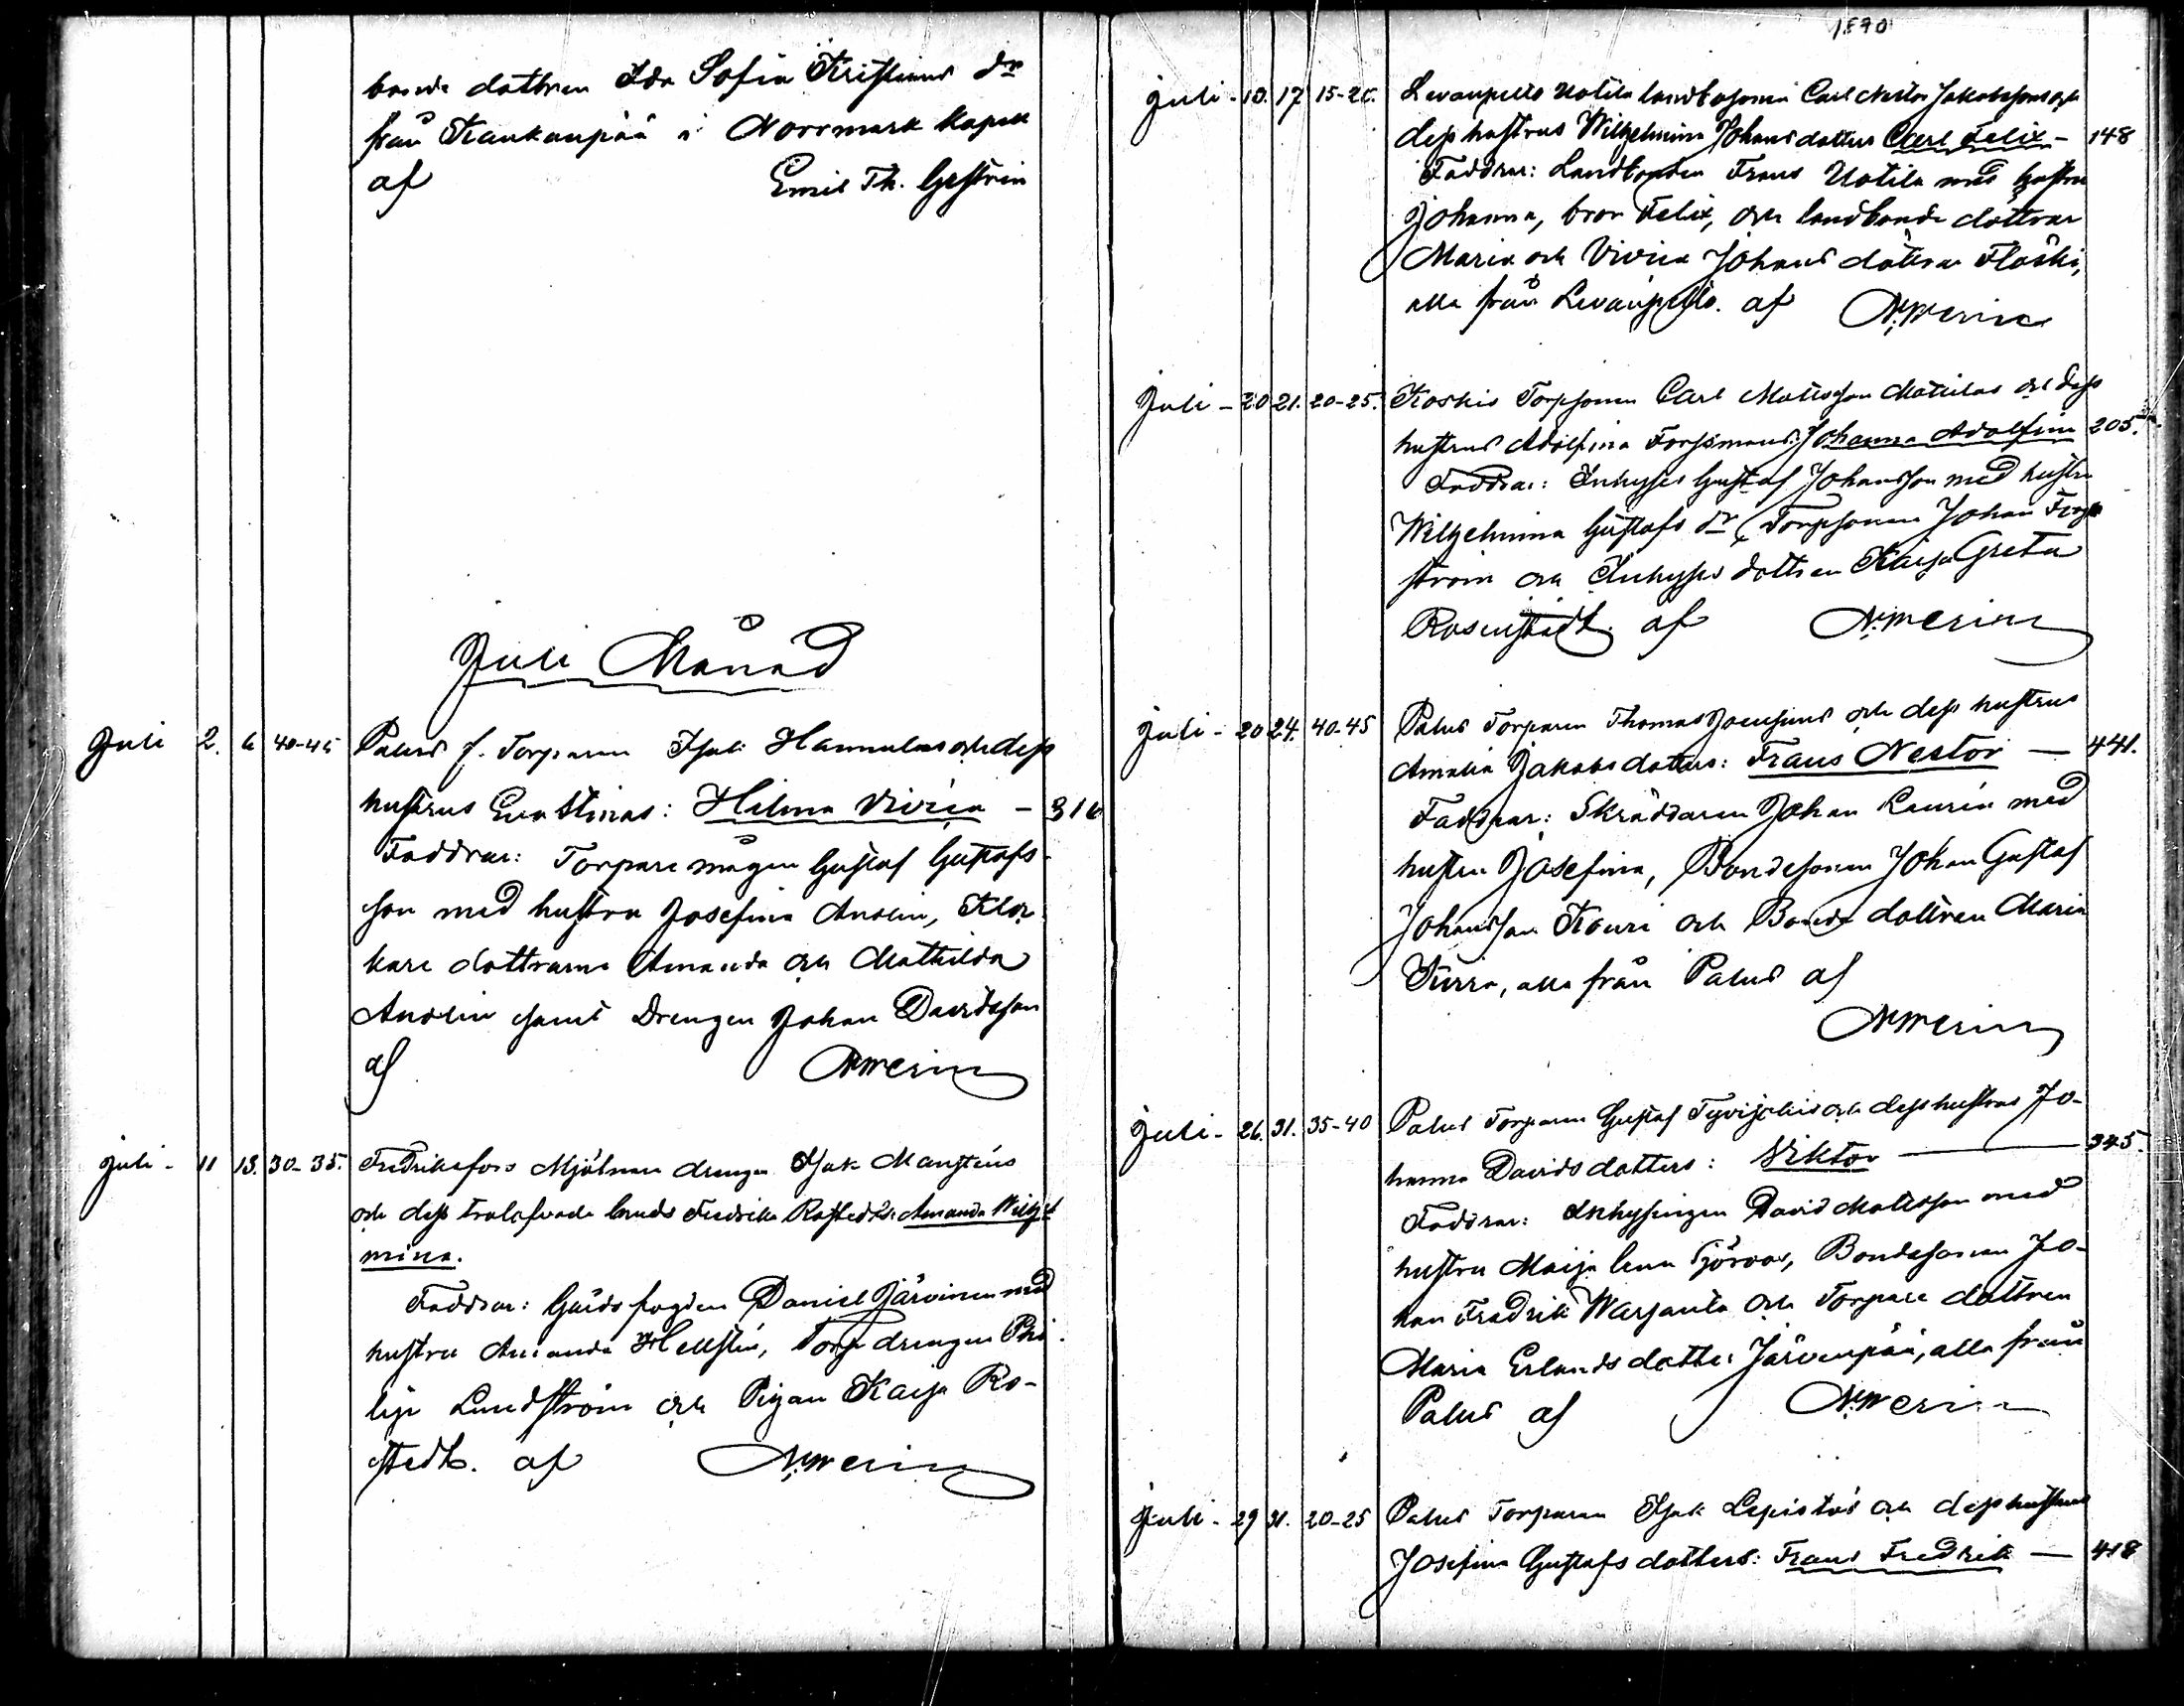 bonde dottren Ida Sofia Kristians dr
från Kankaanpää i Norrmark kapell
af Emil Th. Gestrin
Juli Månad
Juli 2. 6 40-45 Palus f. Torparen Isak Hannulas och dess
hustrus Eva Stinas: Hilma Vivia - 316
Faddrar: Torpare mågen Gustaf Gustafs-
son med hustru Josefina Anolin, Kloc-
kare dottrarna Amanda och Mathilda
Anolin samt Drengen Johan Davidsson
af
juli - 11 13. 30-35. Fredriksfors Mjölnare drengen Isak Mansténs
och dess trolofvade bruds Fredrika Rostedts: Amanda Wilhel
mina.
Faddrar: Gårdsfogden Daniel Järvinen med
hustru Amanda Hellstén, Torp drengen Phi-
lip Lundström och Pigan Kaisa Ro-
stedt. af
1870
Juli - 10. 17 15-20. Levanpelto Uotila landbosonen Carl Nestor Jakobssons och
dess hustrus Wilhelmina Johansdotters Carl Felix - 148
Faddrar: Landbonden Frans Uotila med hustru
Johanna, bror Felix, och landbonde döttrar
Maria och Vivia Johans döttrar Flöski,
alla från Levanpelto. af
Juli - 20 21. 20-25. Koskis Torpsonen Carl Mattsson Mattilas och dess
hustrus Adolfina Forssmans: Johanna Adolfina 205.
Faddrar: Inhyses Gustaf Johansson med hustru
Wilhelmina Gustafs dr, Torpsonen Johan Forss
ström och Inhyses dottren Kaisa Greta
Rosenstedt. af
juli - 20 24. 40-45 Palus Torparen Thomas Joensuus och dess hustrus
Amalia Jakobsdotters: Frans Nestor — 441.
Faddrar: Skräddaren Johan Laurin med
hustru Josefina, Bondesonen Johan Gustaf
Johansson Kouri och Bonde dottren Maria
Jurra, alla från Palus af
juli - 26. 31. 35-40 Palus Torparen Gustaf Tyvijokis och dess hustrus Jo-
hanna Davidsdotters: Viktor — 345.
Faddrar: Inhysingen David Mattsson med
hustru Maija Lena Björroos, Bondesonen Jo-
han Fredrik Warjanta och Torpare dottren
Maria Erlandsdotter Järvenpää, alla från
Palus af
Juli - 29 31. 20-25 Palus Torparen Isak Lepistös och dess hustrus
Josefina Gustafsdotters: Frans Fredrik — 418